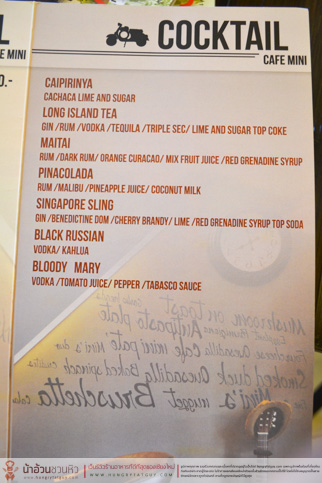 L
COCKTAIL
E MINI
CAFE MINI
0.-
CAIPIRINYA
CACHACA LIME AND SUGAR
LONG ISLAND TEA
GIN /RUM /VODKA /TEQUILA /TRIPLE SEC/ LIME AND SUGAR TOP COKE
MAITAI
RUM /DARK RUM/ ORANGE CURACAO/ MIX FRUIT JUICE /RED GRENADINE SYRUP
PINACOLADA
RUM /MALIBU /PINEAPPLE JUICE/ COCONUT MILK
SINGAPORE SLING
GIN /BENEDICTINE DOM /CHERRY BRANDY/ LIME /RED GRENADINE SYRUP TOP SODA
BLACK RUSSIAN
VODKA/ KAHLUA
BLOODY MARY
VODKA /TOMATO JUICE/ PEPPER /TABASCO SAUCE
Mushroom on toast
Antipasto plate
Quesadilla Cafe mini pate Mini's duo
Smoked duck Quesadilla Baked spinach
Mini's nugget Bruschetta
น้าอ้วนชวนหิว
WWW.HUNGRYFATGUY.COM